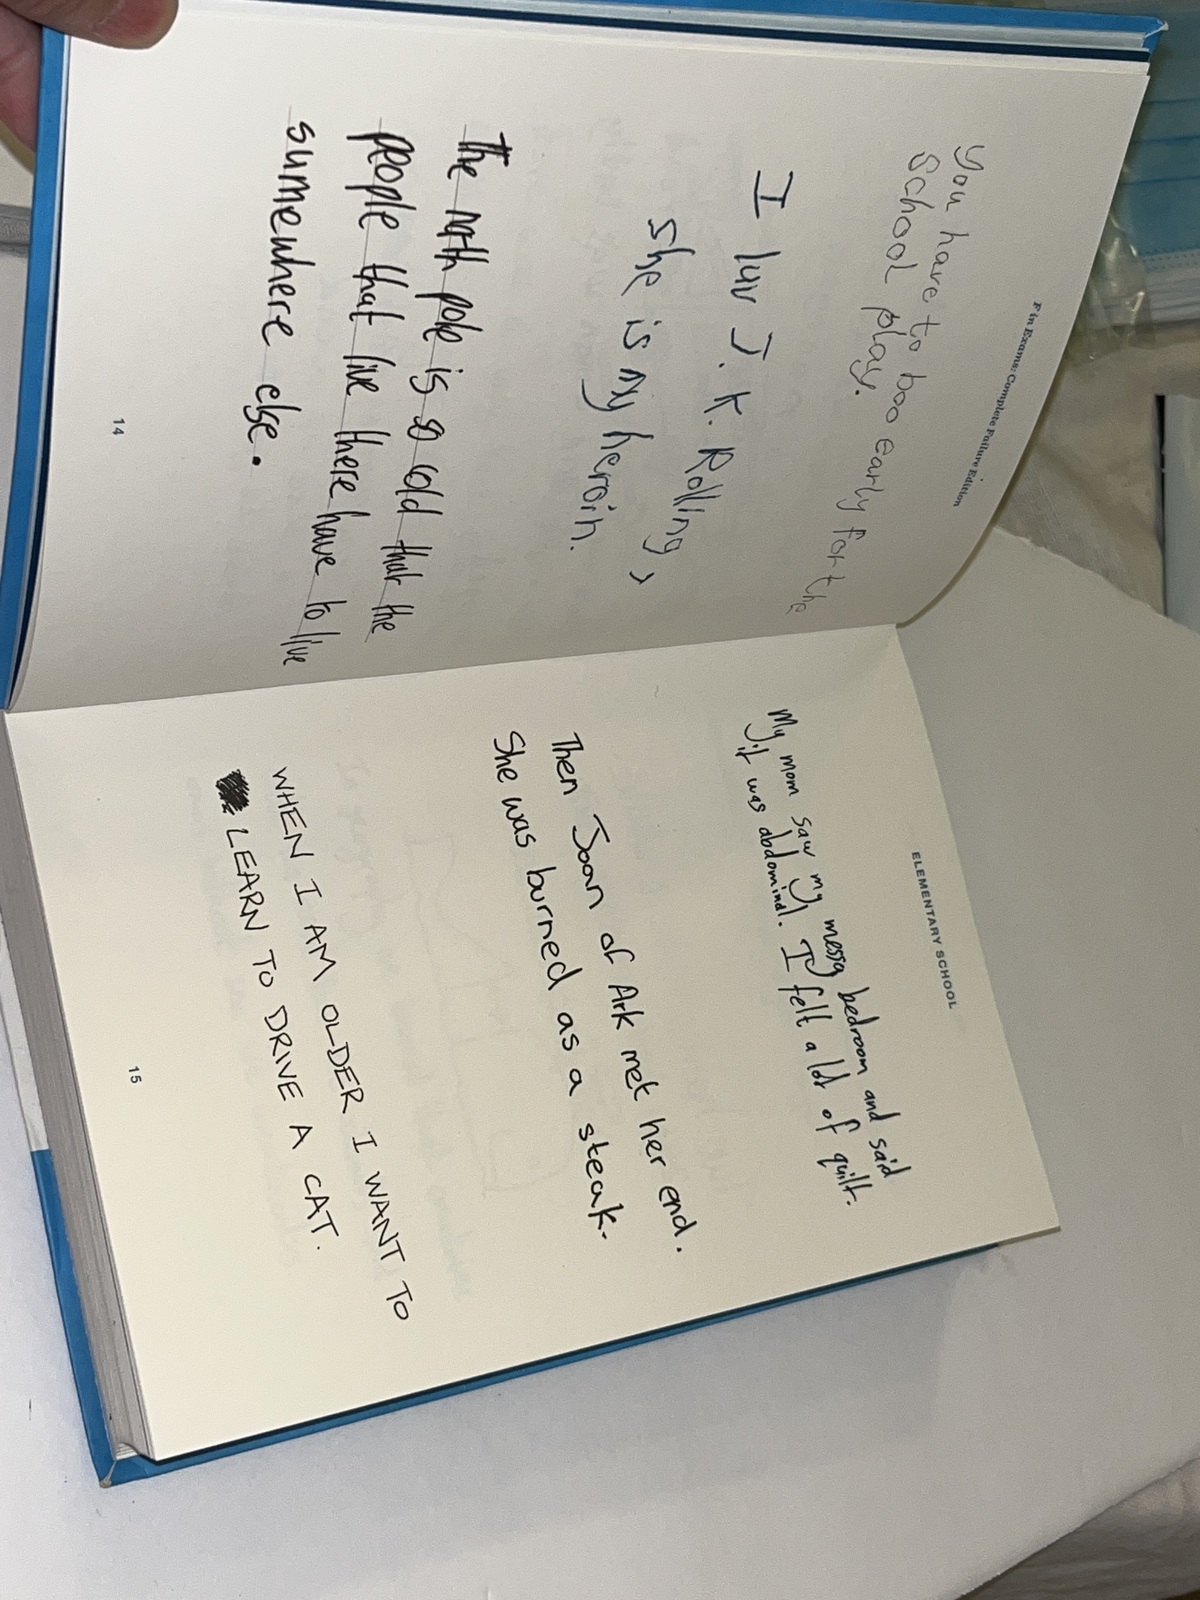 F in Exams: Complete Failure Edition
You have to boo early for the
School play.
I luv J. K. Rolling,
she is my heroin.
The noth pole is so cold that the
people that live there have to live
sumewhere else.
14
ELEMENTARY SCHOOL
My mom saw my messy bedroom and said
it was abdominal. I felt a lot of quilt.
Then Joan of Ark met her end.
She was burned as a steak.
WHEN I AM OLDER I WANT TO
LEARN TO DRIVE A CAT.
15